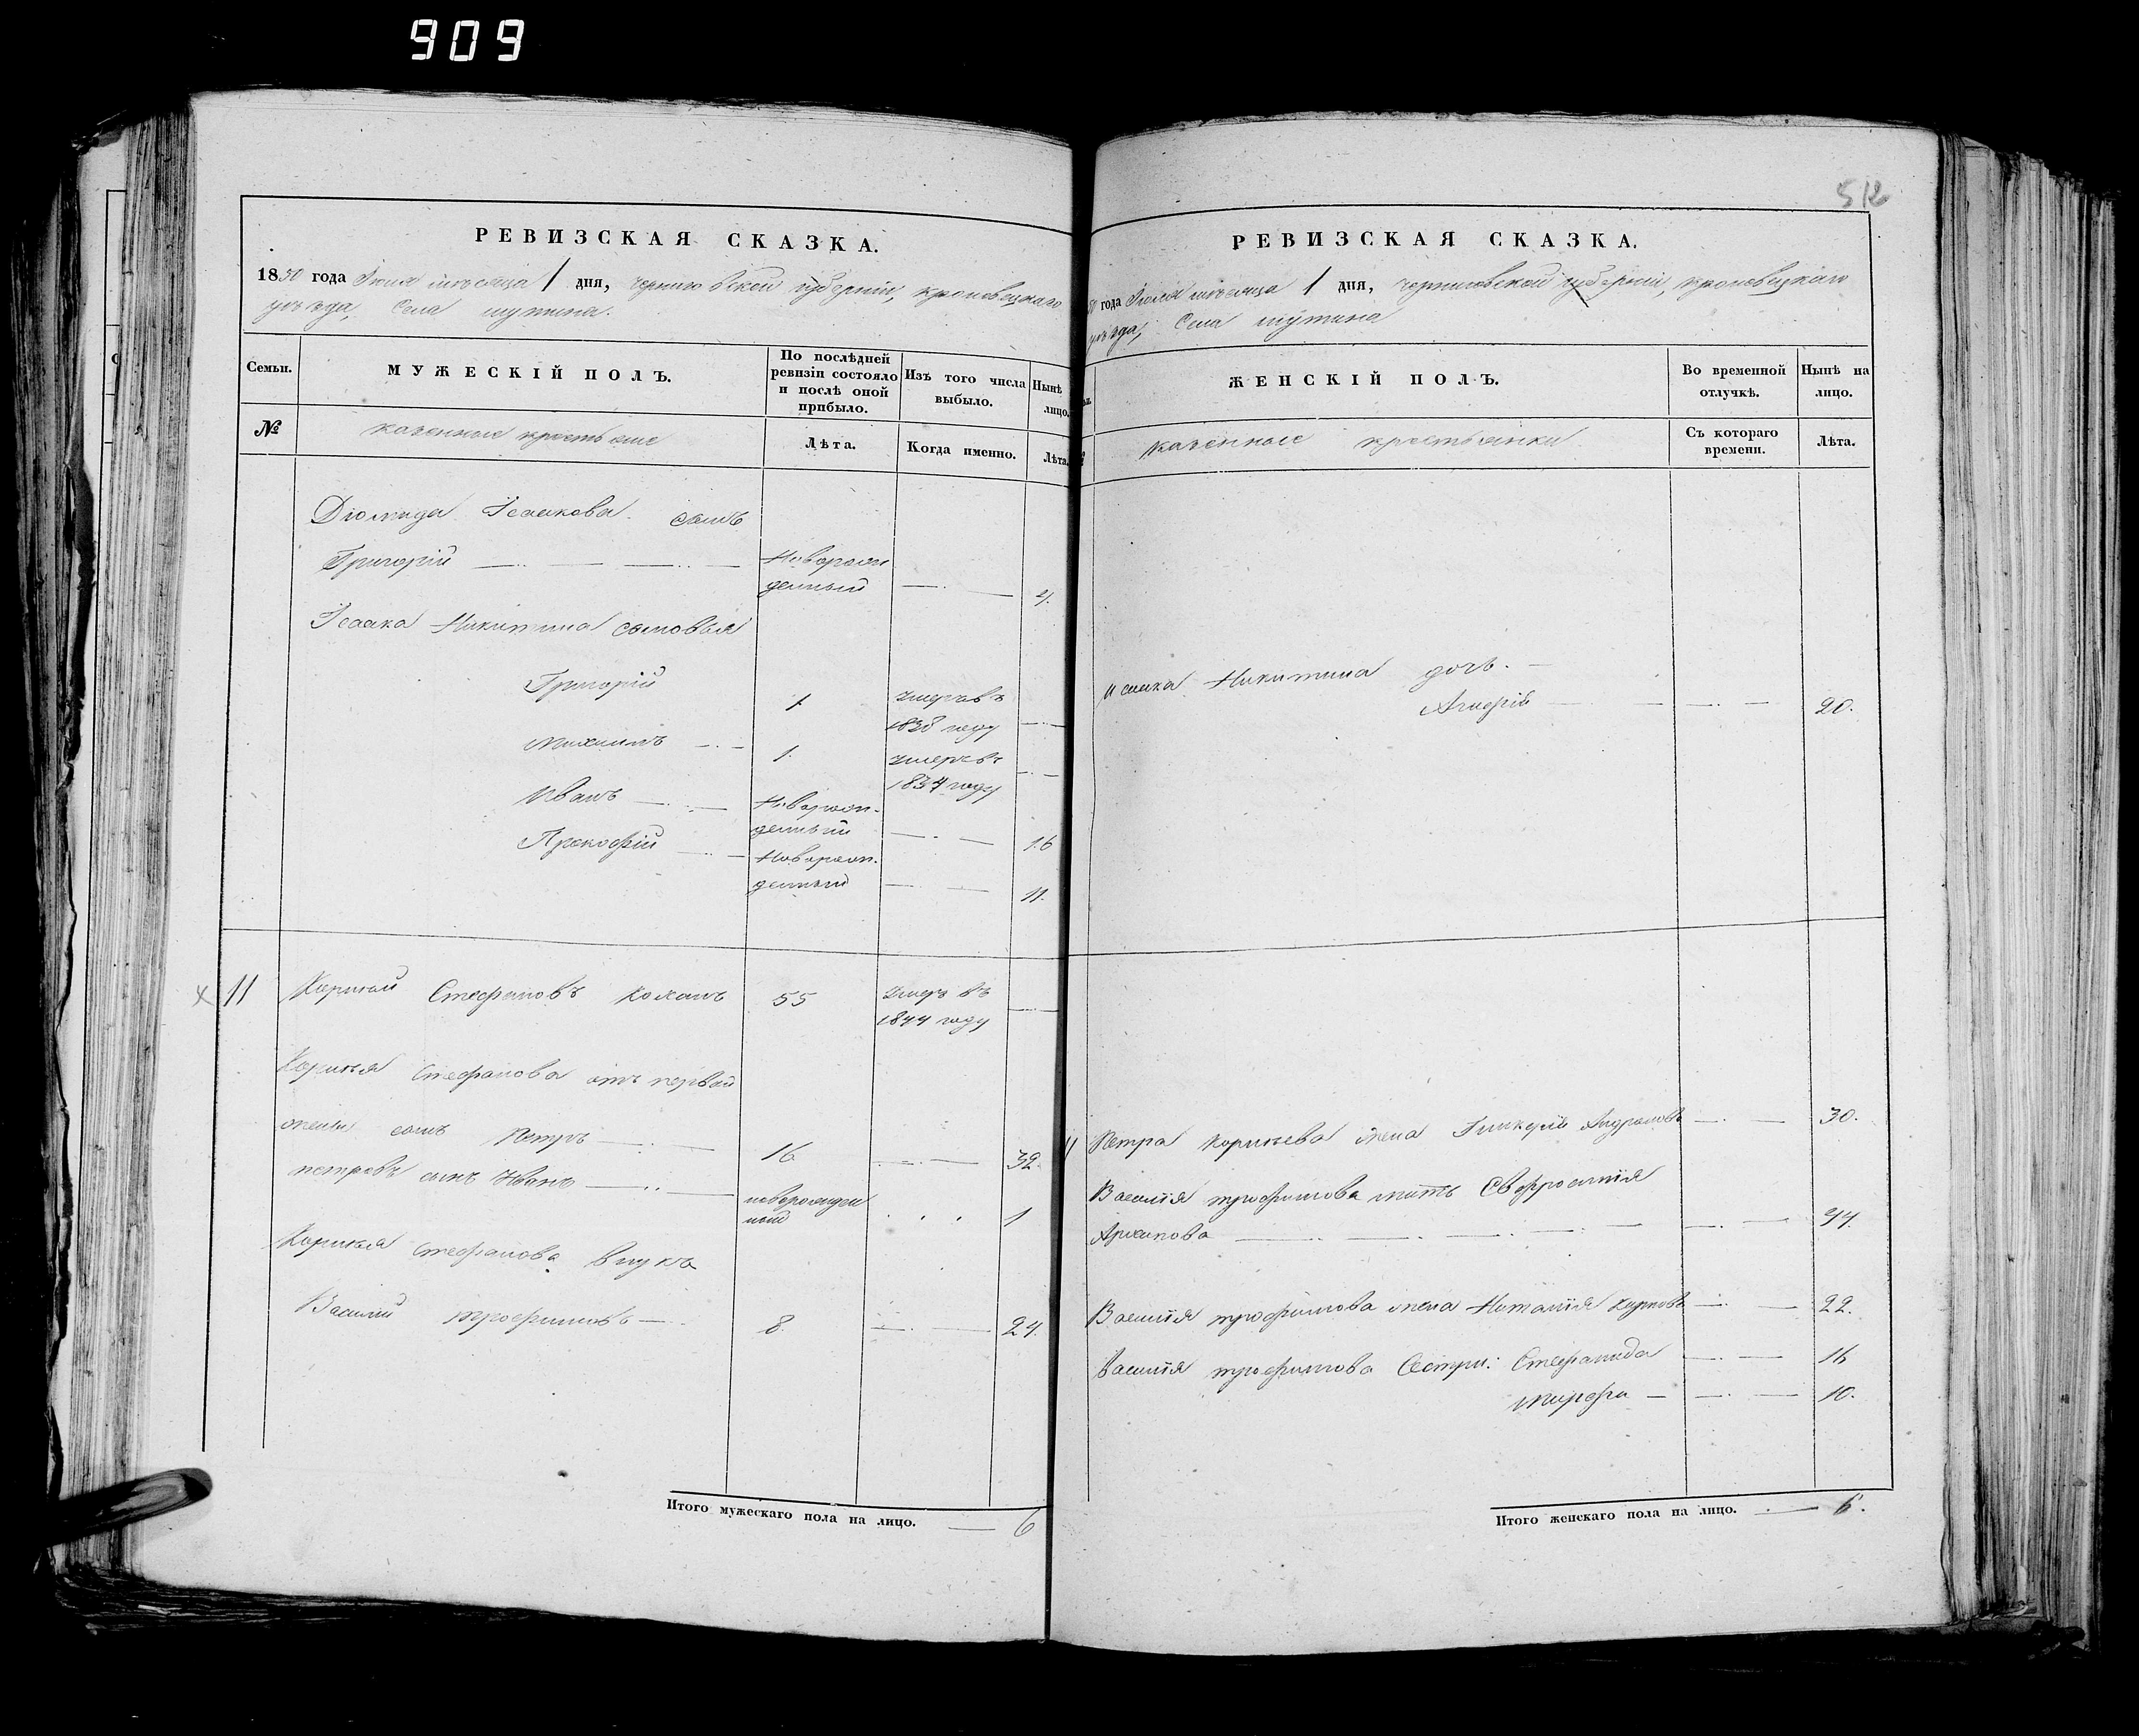 909
512
РЕВИЗСКАЯ СКАЗКА.
1850 года Июня мѣсяца 1 дня, Черниговской губерніи, кролевецкаго
уѣзда, Села шутина.
Семьи.
МУЖЕСКІЙ ПОЛЪ.
По послѣдней ревизіи состояло и послѣ оной прибыло.
Изъ того числа выбыло.
Нынѣ лицо.
№
казенные крестьяне
Лѣта.
Когда именно.
Лѣта.
Діомида Исаакова сынъ
Григорій
Новорож
денный
4.
Исаака Никитина сыновья
Григорій
1
умеръ въ
1838 году
Михаилъ
1.
умеръ въ
1834 году
Иванъ
Новорож-
денный
16
Прокофій
Новорож.
денный
11.
11
Корнѣй Стефановъ
55
Умеръ въ
1844 году
Корнѣя Стефанова отъ первой
жены сынъ Петръ
16
32.
петровъ сынъ Иванъ
новорожден
ный
1
Корнѣя Стефанова внукъ
Василій трофимовъ
8.
24.
Итого мужескаго пола на лицо.
6
РЕВИЗСКАЯ СКАЗКА.
года Июня мѣсяца 1 дня, черниговской губерніи, кролевецкаго
уѣзда, Села шутина
ЖЕНСКІЙ ПОЛЪ.
Во временной отлучкѣ.
Нынѣ на лицо.
казенные крестьянки
Съ котораго времени.
Лѣта.
Исаака Никитина дочь.
20.
11 Петра Корнѣева жена
30.
Василія трофимова мать Євфросинія
Архипова
44.
Василія трофимова жена Наталія
22.
Василія трофимова Сестри: Стефанида
16
марфа
10.
Итого женскаго пола на лицо.
6.